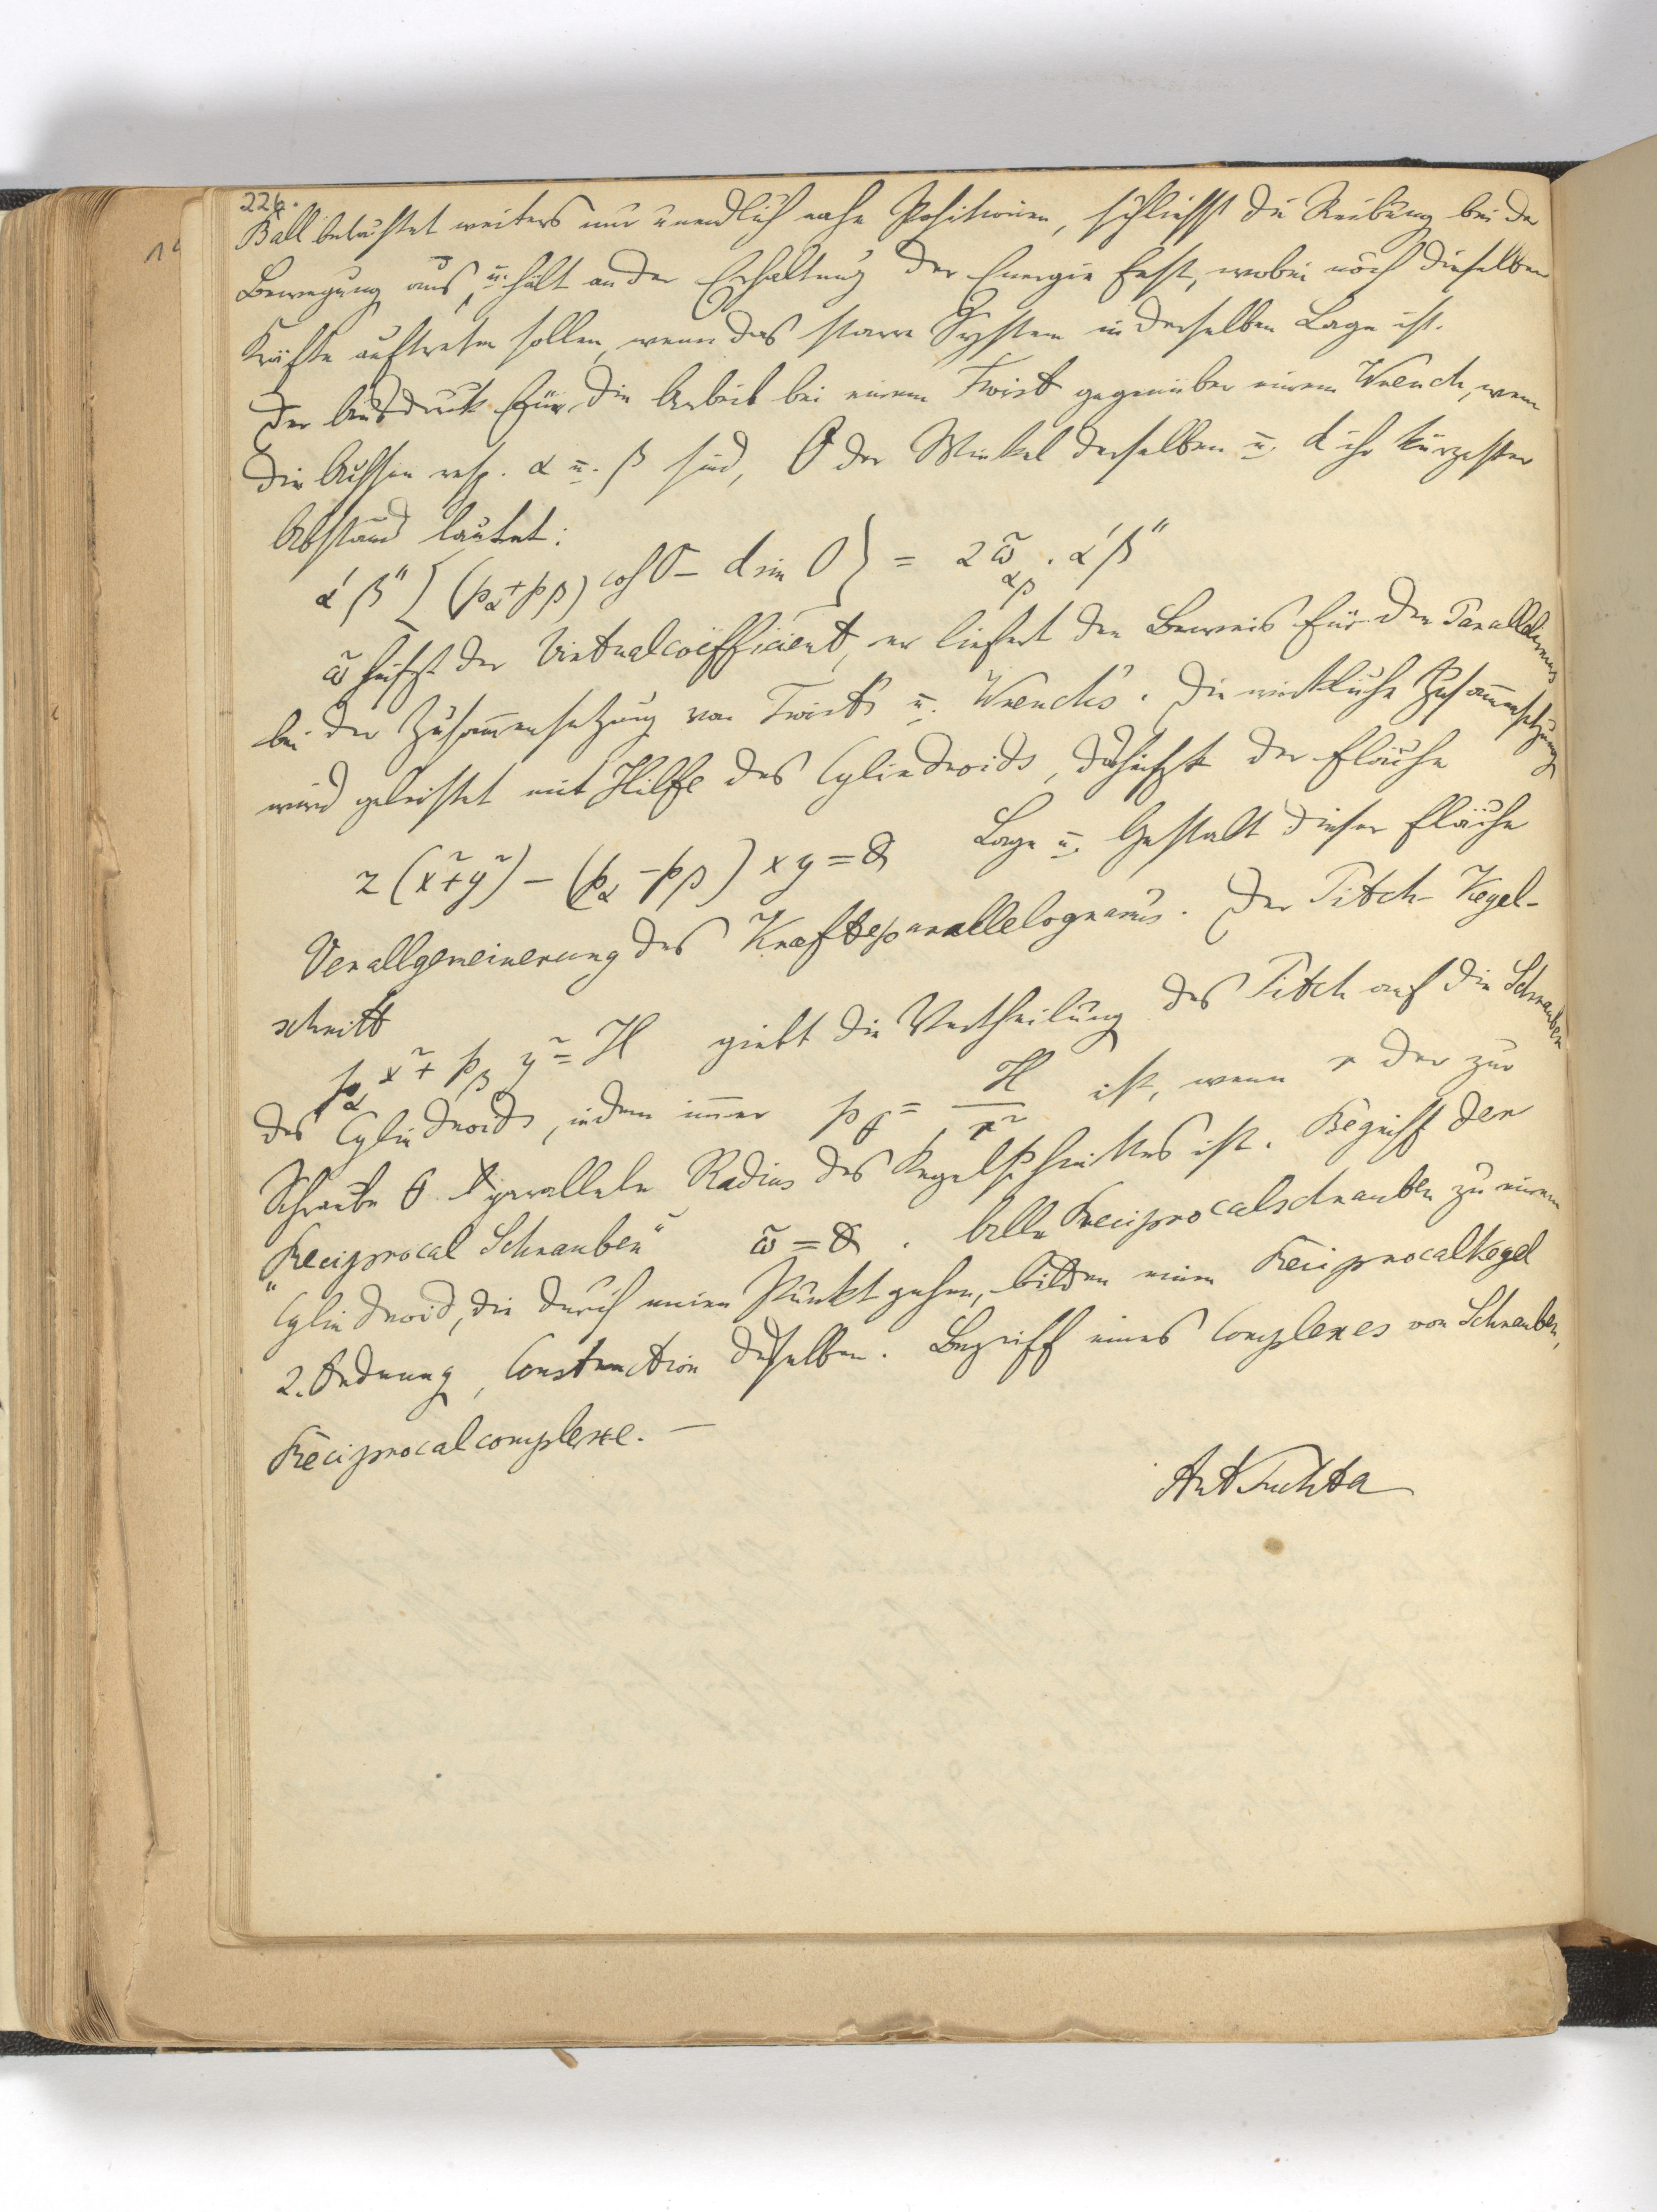 226.
Ball betrachtet weiters nur unendlich nahe Positionen, schliesst die Reibung bei der
Bewegung aus, u. hält an der Erhaltung der Energie fest, wobei noch dieselben
Kräfte auftreten sollen, wenn das starre System in derselben Lage ist.
Der Ausdruck für die Arbeit bei einem Twist gegenüber einem Wrench, wenn
die Achsen resp. α u. β sind, O der Winkel derselben u. d ihr kürzester
Abstand lautet:
α' β'' [(p_α + p_β) cos O − d sin O} = 2 ω̃_αβ . α' β''
ω̃ heisst der Virtualcoëfficient, er liefert den Beweis für den Parallelismus
bei der Zusammensetzung von Twists u. Wrenchs. Die wirkliche Zusammensetzung
wird geleistet mit Hilfe des Cylindroids, das heisst der Fläche
z (x² + y²) − (p_α − p_β) x y = 0 Lage u. Gestalt dieser Fläche
Verallgemeinerung des Kräfteparallelogramms. Der Pitch-Kegel-
schnitt
p_α x² + p_β y² = H giebt die Vertheilung des Pitch auf die Schrauben
des Cylindroids, indem immer p_θ = H / r² ist, wenn r der zur
Schraube θ parallele Radius des Kegelschnittes ist. Begriff der
"Reciprocal Schrauben" ω̃ = 0. Alle Reciprocalschrauben zu einem
Cylindroid, die durch einen Punkt gehen, bilden einen Reciprocalkegel
2. Ordnung, Construction desselben. Begriff eines Complexes von Schrauben,
Reciprocalcomplexe. —
Ant Puchta